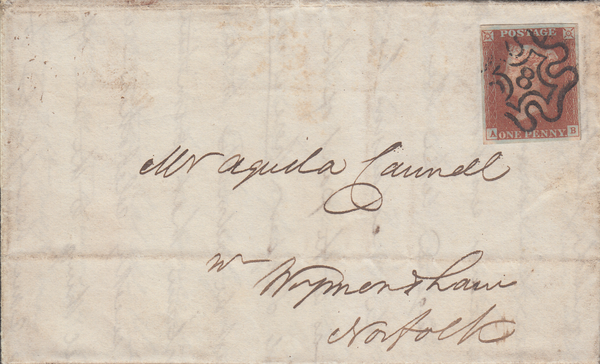 POSTAGE
8
A ONE PENNY B
Mr Aquila Caunell
nr Wymondham
Norfolk